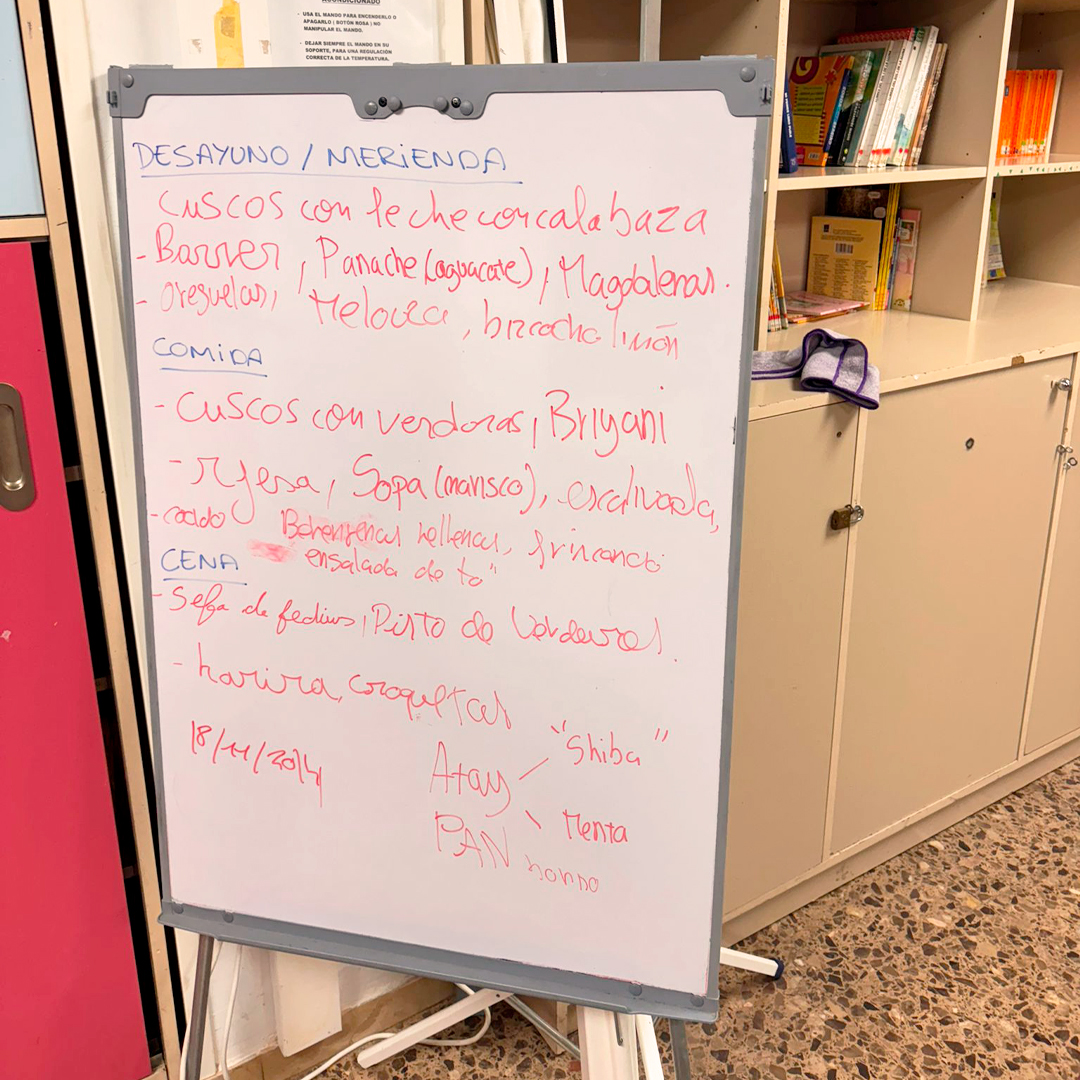 ACONDICIONADO
- USA EL MANDO PARA ENCENDERLO O
APAGARLO ( BOTÓN ROSA ) NO
MANIPULAR EL MANDO.
- DEJAR SIEMPRE EL MANDO EN SU
SOPORTE, PARA UNA REGULACIÓN
CORRECTA DE LA TEMPERATURA.
DESAYUNO / MERIENDA
CUSCOS con leche con calabaza
- Barrer, Panache (aguacate), Magdalenas.
- oreguelas, Meloua, bizcocho limón
COMIDA
- CUSCOS con verduras, Briyani
- Rfesa, Sopa (marisco), escalivada,
- caldo Berenjenas rellenas, fricandó
ensalada de to"
CENA
- Sefa de fedius, Pisto de Verduras.
- harira, croquetas
18/11/2024
Atay "Shiba"
Menta
PAN horno